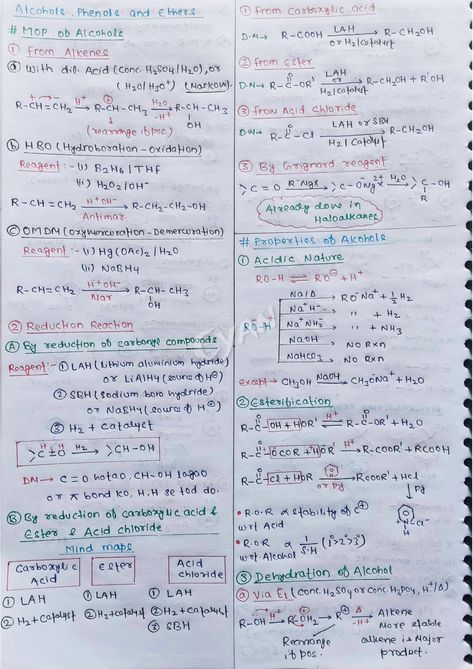 Alcohols, Phenols and Ethers
# MOP of Alcohols
① From Alkenes
ⓐ with dil. Acid (conc. H2SO4/H2O), or
(H2O/H3O+) (Markow.)
R-CH=CH2 H+→ R-CH-CH3 H2O→ -H+ R-CH-CH3
⊕ OH
(rearrange if pos)
ⓑ HBO (Hydroboration-oxidation)
Reagent:- (i) B2H6/THF
(ii) H2O2/OH-
R-CH=CH2 H+OH-→ R-CH2-CH2-OH
Antimar.
ⓒ OMDM (oxymercuration-Demercuration)
Reagent:- (i) Hg(OAc)2/H2O
(ii) NaBH4
R-CH=CH2 H+OH-→ R-CH-CH3
Mar OH
② Reduction Reaction
Ⓐ By reduction of carbonyl compounds
Reagent:- ① LAH (Lithium aluminium hydride)
or LiAlH4 (source of H⊖)
② SBH (Sodium boro hydride)
or NaBH4 (source of H⊖)
③ H2 + Catalyst
>C=O H2→ >CH-OH
H H
DM→ C=O hatao, CH-OH lagao
or π bond ko, H,H se tod do.
Ⓑ By reduction of carboxylic acid &
Ester & Acid chloride
Mind maps
Carboxylic Acid Ester Acid chloride
① LAH ① LAH ① LAH
② H2+Catalyst ② H2+catalyst ② H2+Catalyst
③ SBH
① From carboxylic acid
D.M→ R-COOH LAH→ or H2/Catalyst R-CH2OH
② From Ester
D.M→ R-C-OR' LAH or→ H2/Catalyst R-CH2OH + R'OH
O
③ From Acid chloride
DM→ R-C-Cl LAH or SBH→ H2/Catalyst R-CH2OH
O
③ By Grignard reagent
>C=O R-MgX→ >C-OMgX H2O→ >C-OH
R
Already done in
Haloalkanes
# Properties of Alcohols
① Acidic Nature
RO-H ⇌ RO⊖ + H+
RO-H
Na/Δ→ RO-Na+ + ½H2
Na+H-→ " + H2
Na+NH2-→ " + NH3
NaOH→ No Rxn
NaHCO3→ No Rxn
except→ CH3OH NaOH→ CH3ONa+ + H2O
② Esterification
R-C-OH + HOR' H+⇌ R-C-OR' + H2O
O O
R-C-OCOR + HOR' H+→ R-COOR' + RCOOH
O
R-C-Cl + HOR' or Py→ RCOOR' + HCl
O
Py
N Cl-
H
• R.O.R ∝ stability of C⊕
w.r.t Acid
• R.O.R ∝ 1/S.H (1°>2°>3°)
w.r.t. Alcohol
③ Dehydration of Alcohol
ⓐ Via E1 (conc. H2SO4 or conc. H3PO4, H+/Δ)
R-OH H+→ R-OH2 → R⊕ Δ→ -H+ Alkene
Rearrange
if pos.
More stable
alkene is Major
product.